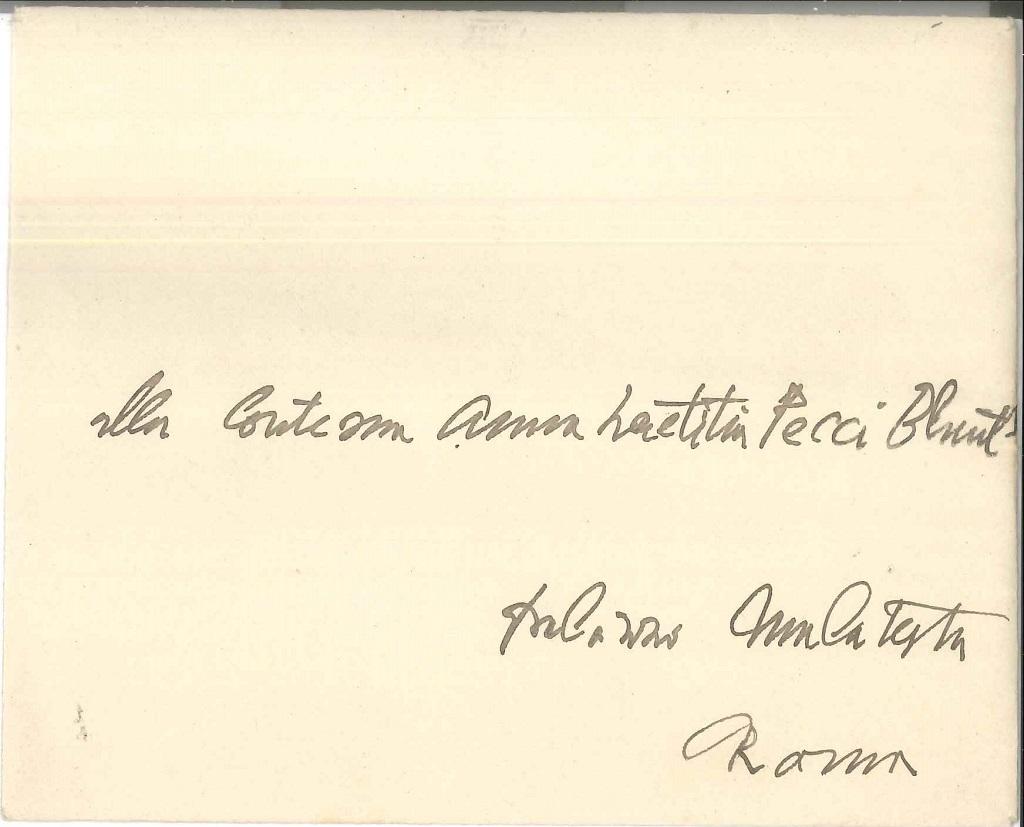 alla Contessa Anna Laetitia Pecci Blunt
palazzo Malatesta
Roma